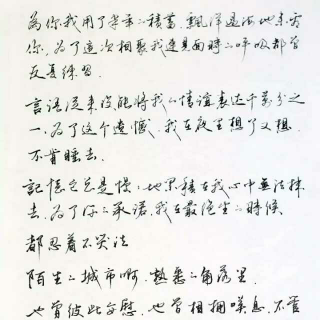 為你我用了半年的積蓄,飄洋過海地来看
你,为了这次相聚我連見面時的呼吸都曾
反复練習.
言語從来没能將我的情誼表达千萬分之
一.为了这个遺憾.我在夜里想了又想.
不肯睡去.
記憶它总是慢慢地累積在我心中無法抹
去.为了你的承诺.我在最绝望的時候
都忍着不哭泣
陌生的城市啊,熟悉的角落里.
也曾彼此安慰,也曾相拥嘆息.不管